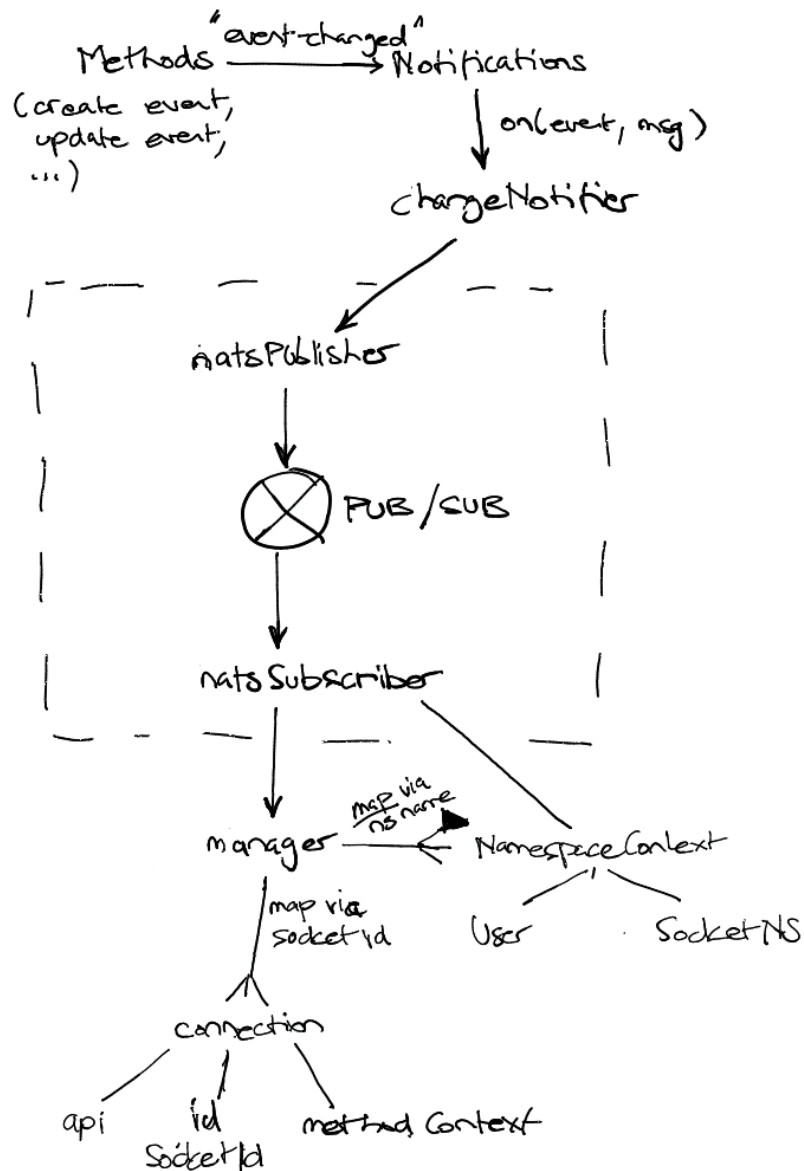 "event-changed"
Methods Notifications
(create event,
update event,
...)
on(event, msg)
changeNotifier
natsPublisher
PUB/SUB
natsSubscriber
map via
ns name
manager
NamespaceContext
map via
socket id
User
SocketNS
connection
api
id
SocketId
method Context